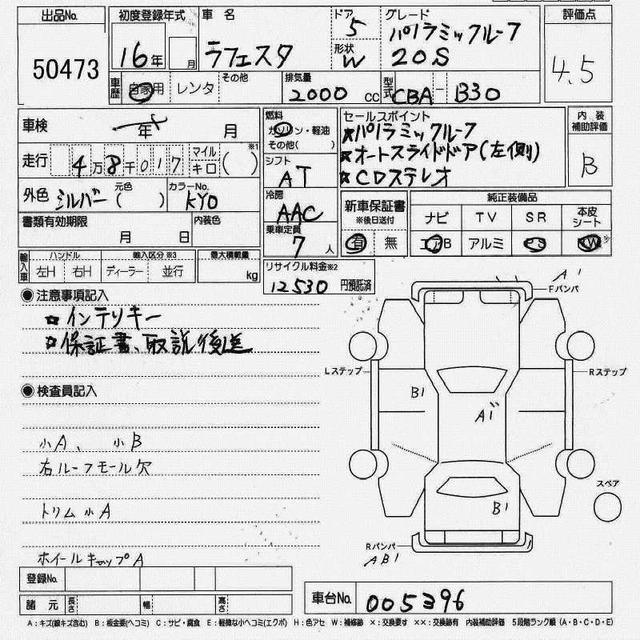 出品No. 50473
初度登録年式 16年 月
車名 ラフェスタ
ドア 5
形状 W
グレード パノラミックルーフ
20S
評価点 4.5
車歴 自家用 レンタ その他
排気量 2000 cc
型式 CBA - B30
車検 年 月
走行 4万8千017 マイル キロ ( ) ※1
外色 シルバー 元色 ( ) カラーNo. KY0
書類有効期限 月 日 内装色
燃料 ガソリン・軽油
その他( )
シフト AT
冷房 AAC
乗車定員 7人
セールスポイント
☆パノラミックルーフ
☆オートスライドドア(左側)
☆CDステレオ
内装補助評価 B
新車保証書 ※後日送付
有 無
純正装備品
ナビ TV SR 本皮シート
エアB アルミ PS PW
輸入車 ハンドル 左H 右H
輸入区分 ※3 ディーラー 並行
最大積載量 kg
リサイクル料金※2
12530 円預託済
●注意事項記入
☆インテリキー
☆保証書、取説後送
●検査員記入
小A、小B
右ルーフモール欠
トリム小A
ホイールキャップA
A'
Fバンパ
Lステップ
Rステップ
B1
A1'
B1
スペア
Rバンパ
AB1
登録No.
諸元 長さ 幅 高さ
車台No. 005396
A:キズ(線キズ含む) B:板金要(ヘコミ) C:サビ・腐食 E:軽微な小ヘコミ(エクボ) H:色アセ W:補修跡 ×:交換要す ××:交換跡有 内装補助評価 5段階ランク順(A・B・C・D・E)